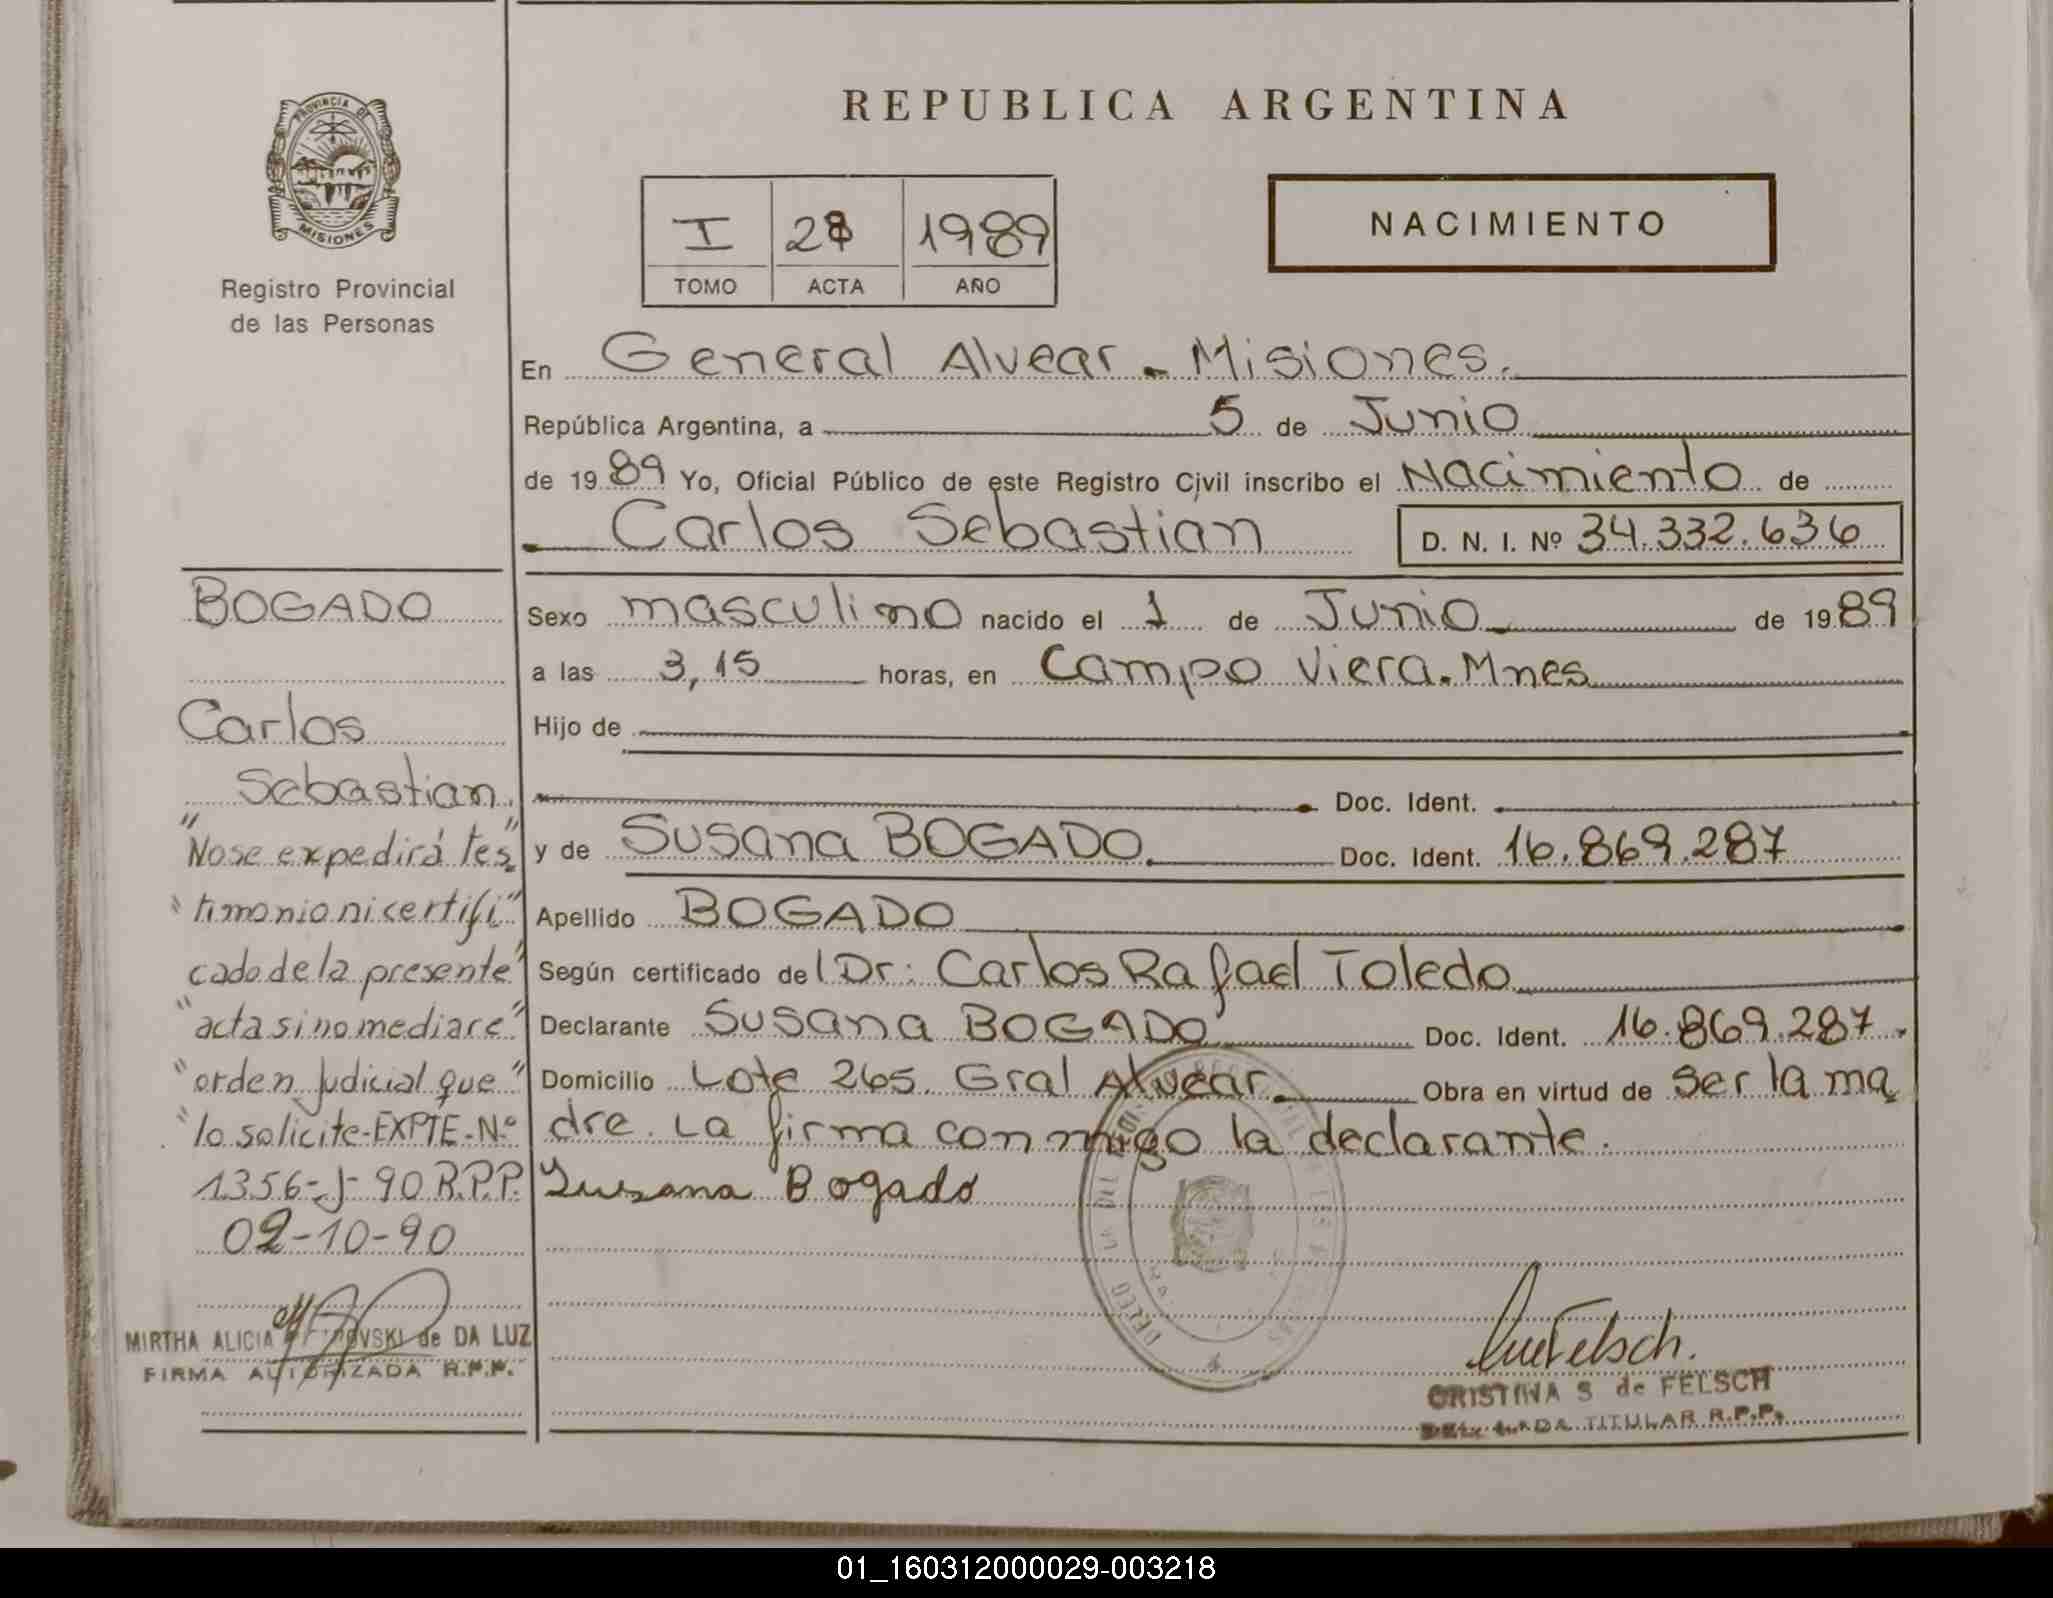 PROVINCIA DE
MISIONES
Registro Provincial
de las Personas
REPUBLICA ARGENTINA
I 28 1989
TOMO ACTA AÑO
NACIMIENTO
En General Alvear - Misiones.
República Argentina, a 5 de Junio
de 1989 Yo, Oficial Público de este Registro Civil inscribo el Nacimiento de
Carlos Sebastian D. N. I. Nº 34.332.636
Sexo masculino nacido el 1 de Junio de 1989
a las 3,15 horas, en Campo Viera. Mnes
Hijo de
Doc. Ident.
y de Susana BOGADO. Doc. Ident. 16.869.287
Apellido BOGADO
Según certificado del Dr: Carlos Rafael Toledo
Declarante Susana BOGADO Doc. Ident. 16.869.287.
Domicilio Lote 265. Gral Alvear. Obra en virtud de ser la ma
dre. La firma conmigo la declarante.
Susana Bogado
CRISTINA S de FELSCH
TITULAR R.P.P.
BOGADO
Carlos
Sebastian.
"No se expedirá tes"
"timonio ni certifi"
cado de la presente"
"acta si no mediare"
"orden judicial que"
"lo solicite-EXPTE-Nº
1356-J-90 R.P.P.
02-10-90
MIRTHA ALICIA de DA LUZ
FIRMA AUTORIZADA R.P.P.
01_160312000029-003218